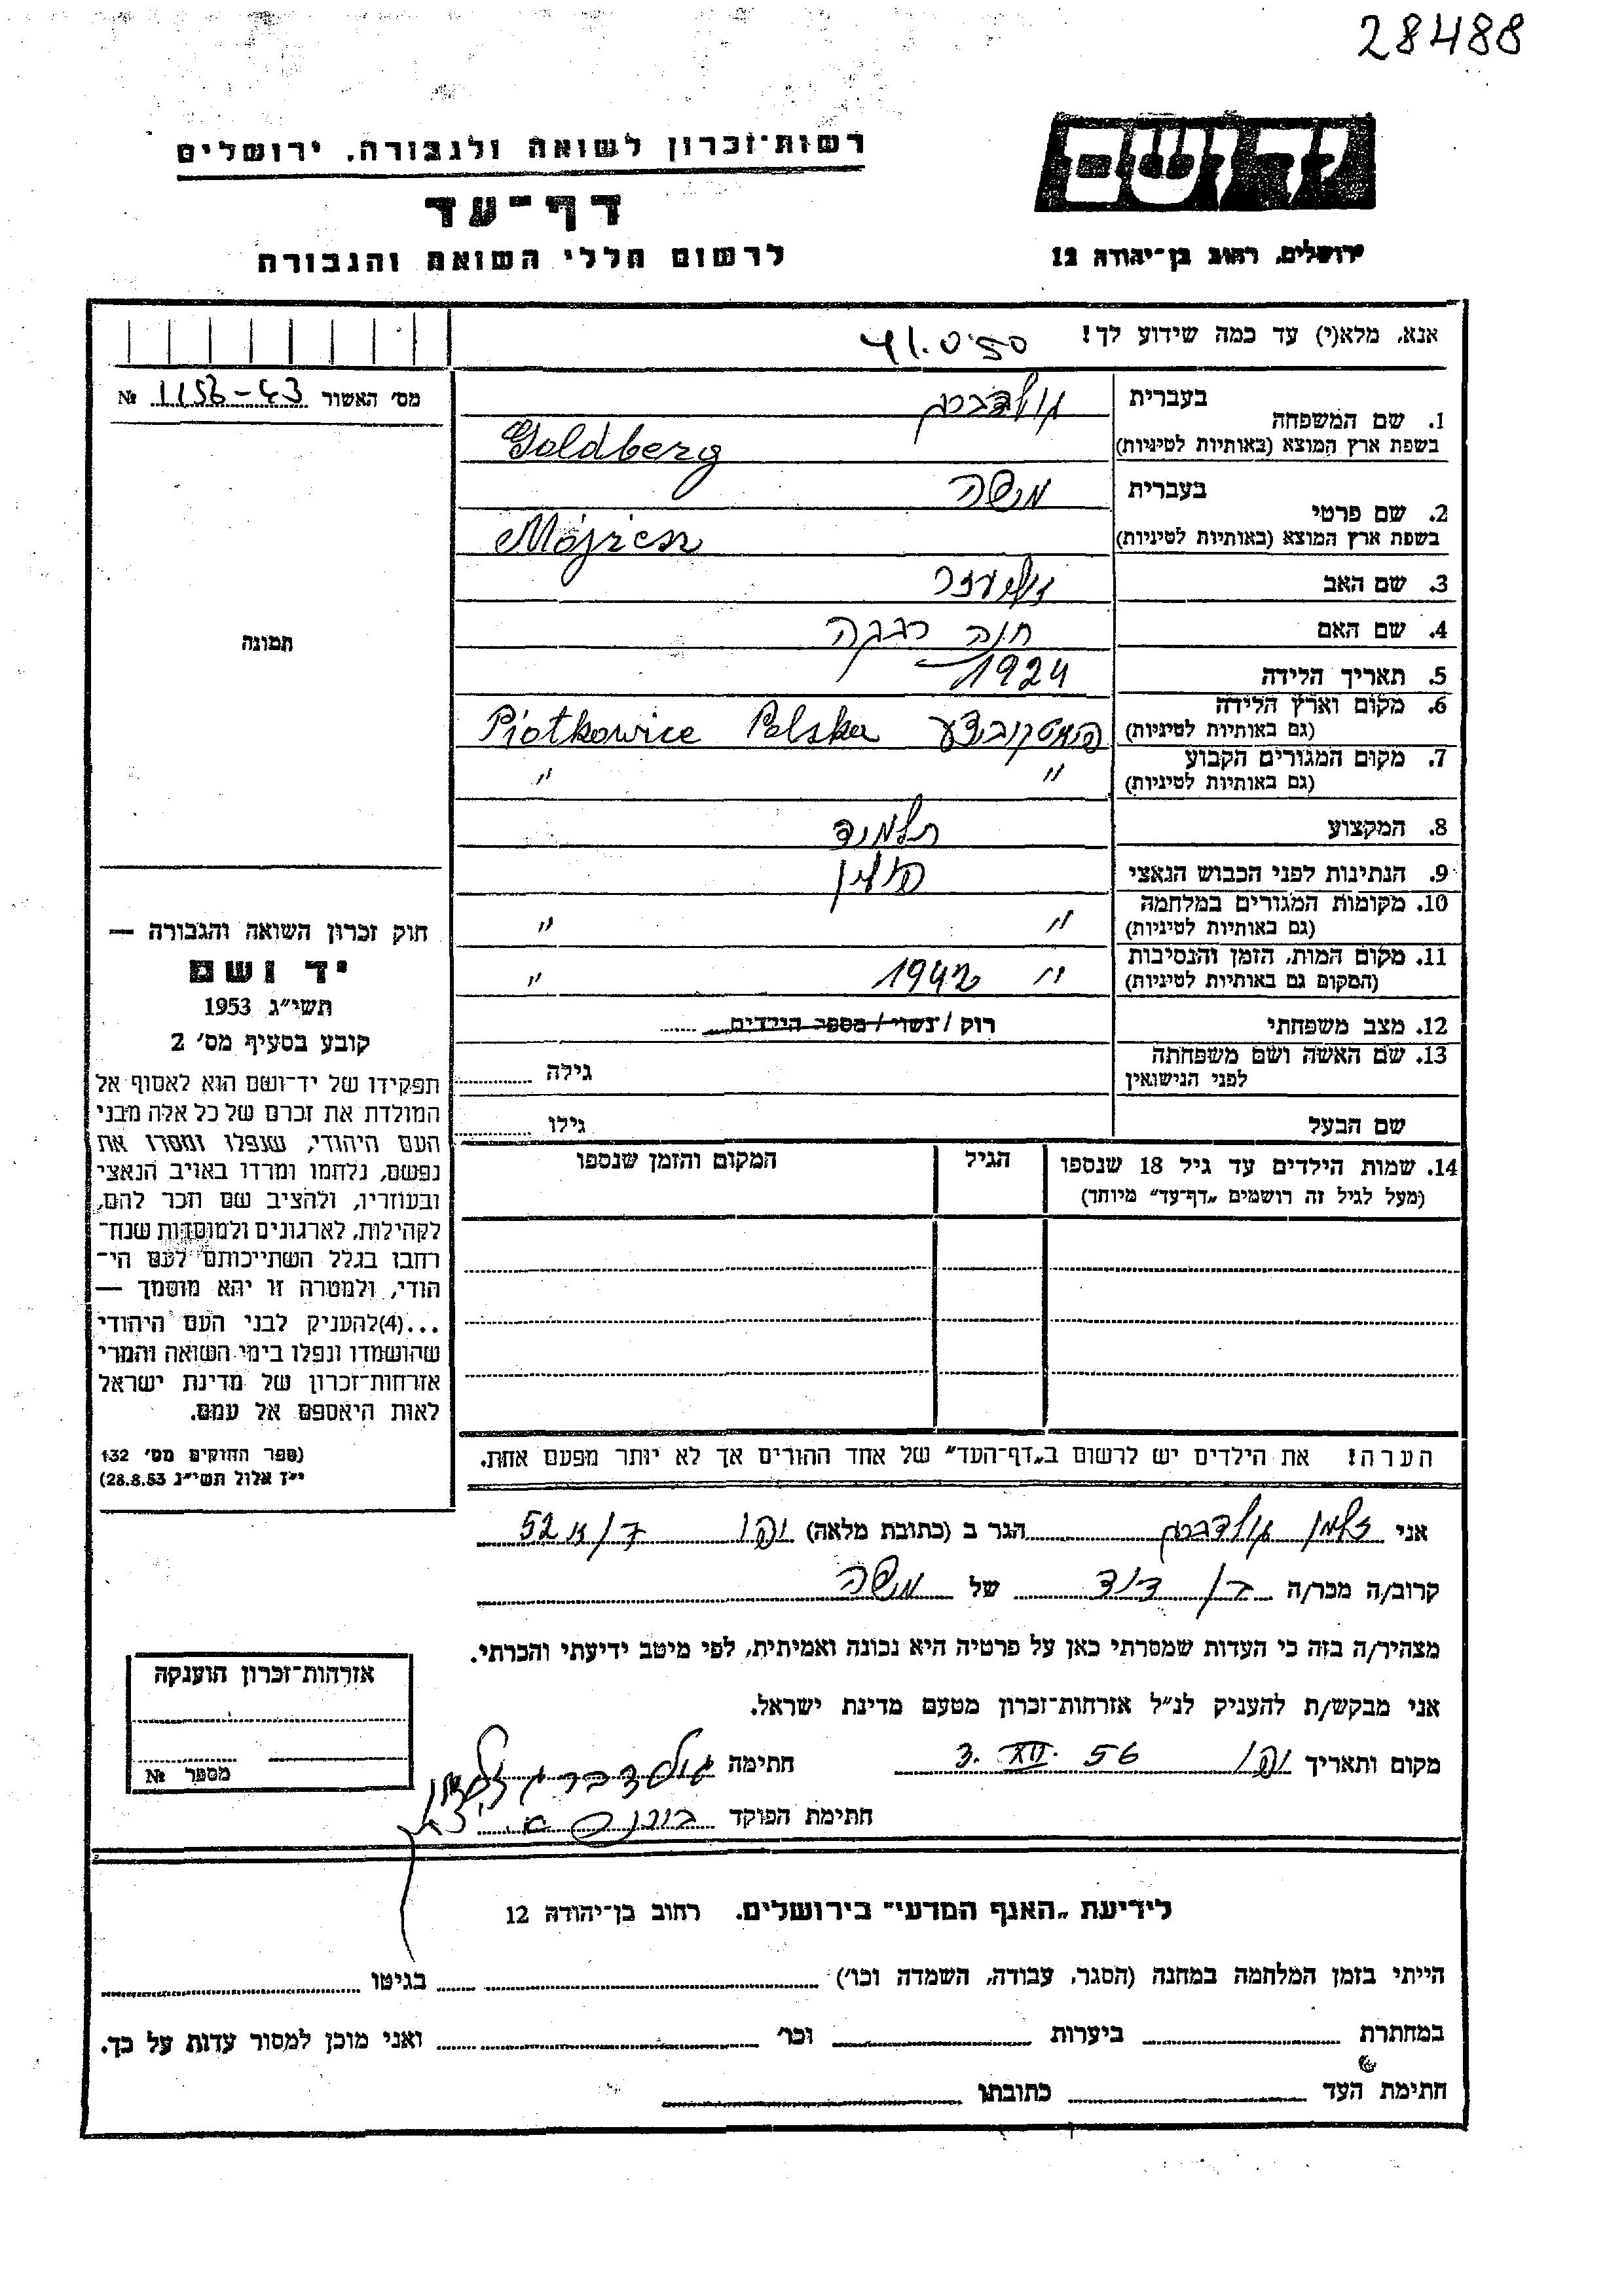 28488
רשות־זכרון לשואה ולגבורה, ירושלים
דף־עד
לרשום חללי השואה והגבורה
יד ושם
ירושלים, רחוב בן־יהודה 12
אנא, מלא(י) עד כמה שידוע לך!
מס׳ האשור 1156-43 №
1. שם המשפחה
בעברית גולדברג
בשפת ארץ המוצא (באותיות לטיניות) Goldberg
2. שם פרטי
בעברית משה
בשפת ארץ המוצא (באותיות לטיניות) Mojżesz
3. שם האב אליעזר
4. שם האם חנה רבקה
5. תאריך הלידה 1924
6. מקום וארץ הלידה
(גם באותיות לטיניות) Piotkowice Polska פיוטקוביצע
7. מקום המגורים הקבוע
(גם באותיות לטיניות) " "
8. המקצוע תלמיד
9. הנתינות לפני הכבוש הנאצי פולין
10. מקומות המגורים במלחמה
(גם באותיות לטיניות) " "
11. מקום המות, הזמן והנסיבות
(המקום גם באותיות לטיניות) " 1942 "
12. מצב משפחתי רווק / נשוי / מספר הילדים
13. שם האשה ושם משפחתה
לפני הנישואין גילה
שם הבעל גילו
14. שמות הילדים עד גיל 18 שנספו
(מעל לגיל זה רושמים „דף־עד״ מיוחד)
הגיל
המקום והזמן שנספו
תמונה
חוק זכרון השואה והגבורה —
יד ושם
תשי״ג 1953
קובע בסעיף מס׳ 2
תפקידו של יד־ושם הוא לאסוף אל
המולדת את זכרם של כל אלה מבני
העם היהודי, שנפלו ומסרו את
נפשם, נלחמו ומרדו באויב הנאצי
ובעוזריו, ולהציב שם וזכר להם,
לקהילות, לארגונים ולמוסדות שנח־
רחבו בגלל השתייכותם לעם הי־
הודי, ולמטרה זו יהא מוסמך —
...(4)להעניק לבני העם היהודי
שהושמדו ונפלו בימי השואה והמרי
אזרחות־זכרון של מדינת ישראל
לאות היאספם אל עמם.
(ספר החוקים מס׳ 132
י״ז אלול תשי״ג 28.8.53)
הערה! את הילדים יש לרשום ב„דף־העד״ של אחד ההורים אך לא יותר מפעם אחת.
אני זלמן גולדברג הגר ב (כתובת מלאה) 52
קרוב/ה מכר/ה בן דוד של משה
מצהיר/ה בזה כי העדות שמסרתי כאן על פרטיה היא נכונה ואמיתית, לפי מיטב ידיעתי והכרתי.
אני מבקש/ת להעניק לנ״ל אזרחות־זכרון מטעם מדינת ישראל.
מקום ותאריך 3. XII. 56 חתימה גולדברג זלמן
חתימת הפוקד
אזרחות־זכרון הוענקה
מספר №
לידיעת „האגף המדעי״ בירושלים, רחוב בן־יהודה 12
הייתי בזמן המלחמה במחנה (הסגר, עבודה, השמדה וכו׳) בגיטו
במחתרת ביערות וכו׳ ואני מוכן למסור עדות על כך.
חתימת העד כתובתו